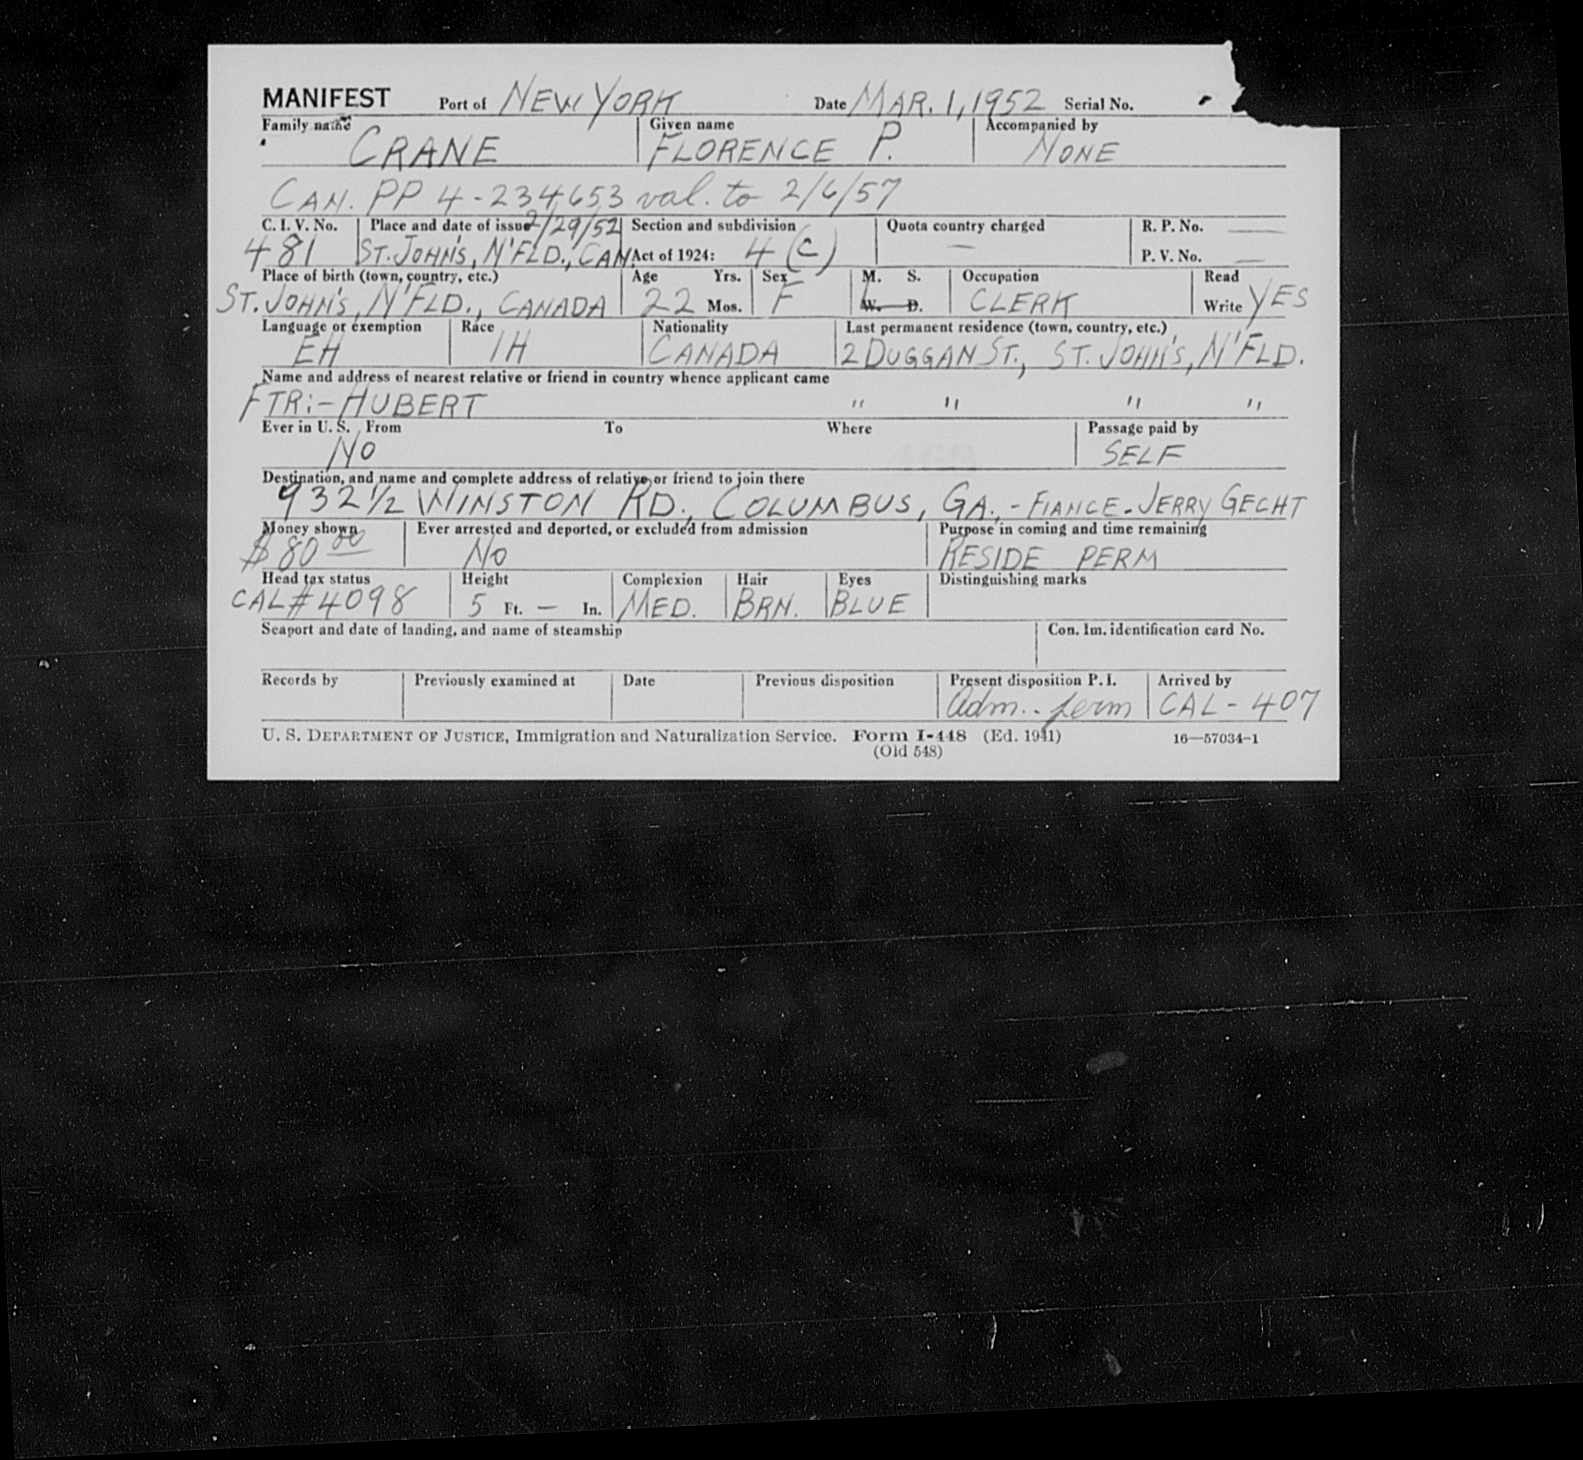 MANIFEST Port of NEW YORK Date MAR. 1, 1952 Serial No.
Family name Given name Accompanied by
CRANE FLORENCE P. NONE
CAN. PP 4-234653 val. to 2/6/57
C. I. V. No. Place and date of issue 2/29/52 Section and subdivision Quota country charged R. P. No. —
481 ST. JOHN'S, N'FLD., CAN. Act of 1924: 4 (C) — P. V. No. —
Place of birth (town, country, etc.) Age Yrs. Sex M. S. Occupation Read
ST. JOHN'S, N'FLD., CANADA 22 Mos. F W. D. CLERK Write YES
Language or exemption Race Nationality Last permanent residence (town, country, etc.)
EH IH CANADA 2 DUGGAN ST., ST. JOHN'S, N'FLD.
Name and address of nearest relative or friend in country whence applicant came
FTR:- HUBERT " " " "
Ever in U. S. From To Where Passage paid by
NO SELF
Destination, and name and complete address of relative or friend to join there
932 1/2 WINSTON RD., COLUMBUS, GA., - FIANCE - JERRY GECHT
Money shown Ever arrested and deported, or excluded from admission Purpose in coming and time remaining
$ 80 00 NO RESIDE PERM
Head tax status Height Complexion Hair Eyes Distinguishing marks
CAL# 4098 5 Ft. — In. MED. BRN. BLUE
Seaport and date of landing, and name of steamship Con. Im. identification card No.
Records by Previously examined at Date Previous disposition Present disposition P. I. Arrived by
Adm. - perm CAL - 407
U. S. DEPARTMENT OF JUSTICE, Immigration and Naturalization Service. Form I-448 (Ed. 1941) 16—57034-1
(Old 548)